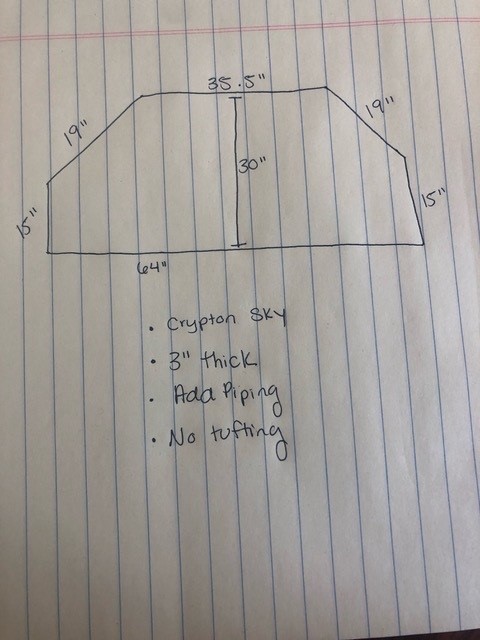 35.5"
19"
19"
30"
15"
15"
64"
• Crypton Sky
• 3" thick
• Add Piping
• No tufting